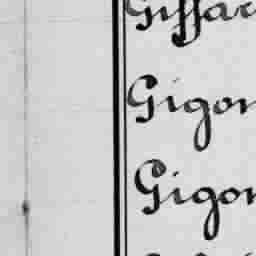 Giffar
Gigon
Gigon